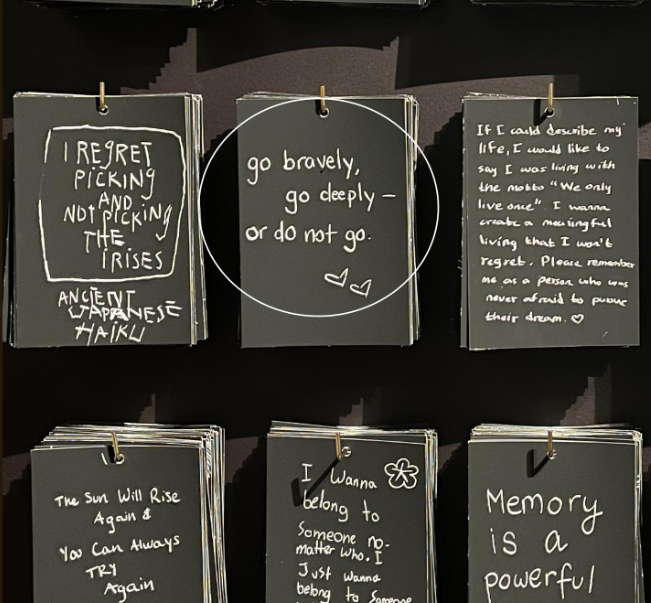 I REGRET
PICKING
AND
NOT PICKING
THE
IRISES
ANCIENT
JAPANESE
HAIKU
go bravely,
go deeply –
or do not go.
If I could describe my
life, I would like to
say I was living with
the motto "We only
live once". I wanna
create a meaningful
living that I won't
regret. Please remember
me as a person who was
never afraid to pursue
their dream. ♡
The Sun Will Rise
Again &
You Can Always
TRY
Again
I Wanna
belong to
Someone no-
matter who. I
Just wanna
belong to Someone
Memory
is a
powerful